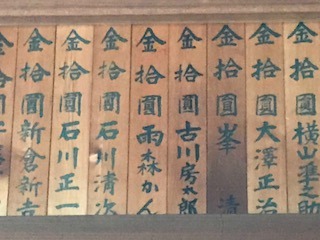 金拾圓横山重之助
金拾圓大澤正治
金拾圓峯 清
金拾圓古川房太郎
金拾圓雨森かん
金拾圓石川清次
金拾圓石川正一
金拾圓新倉新吉
金拾圓